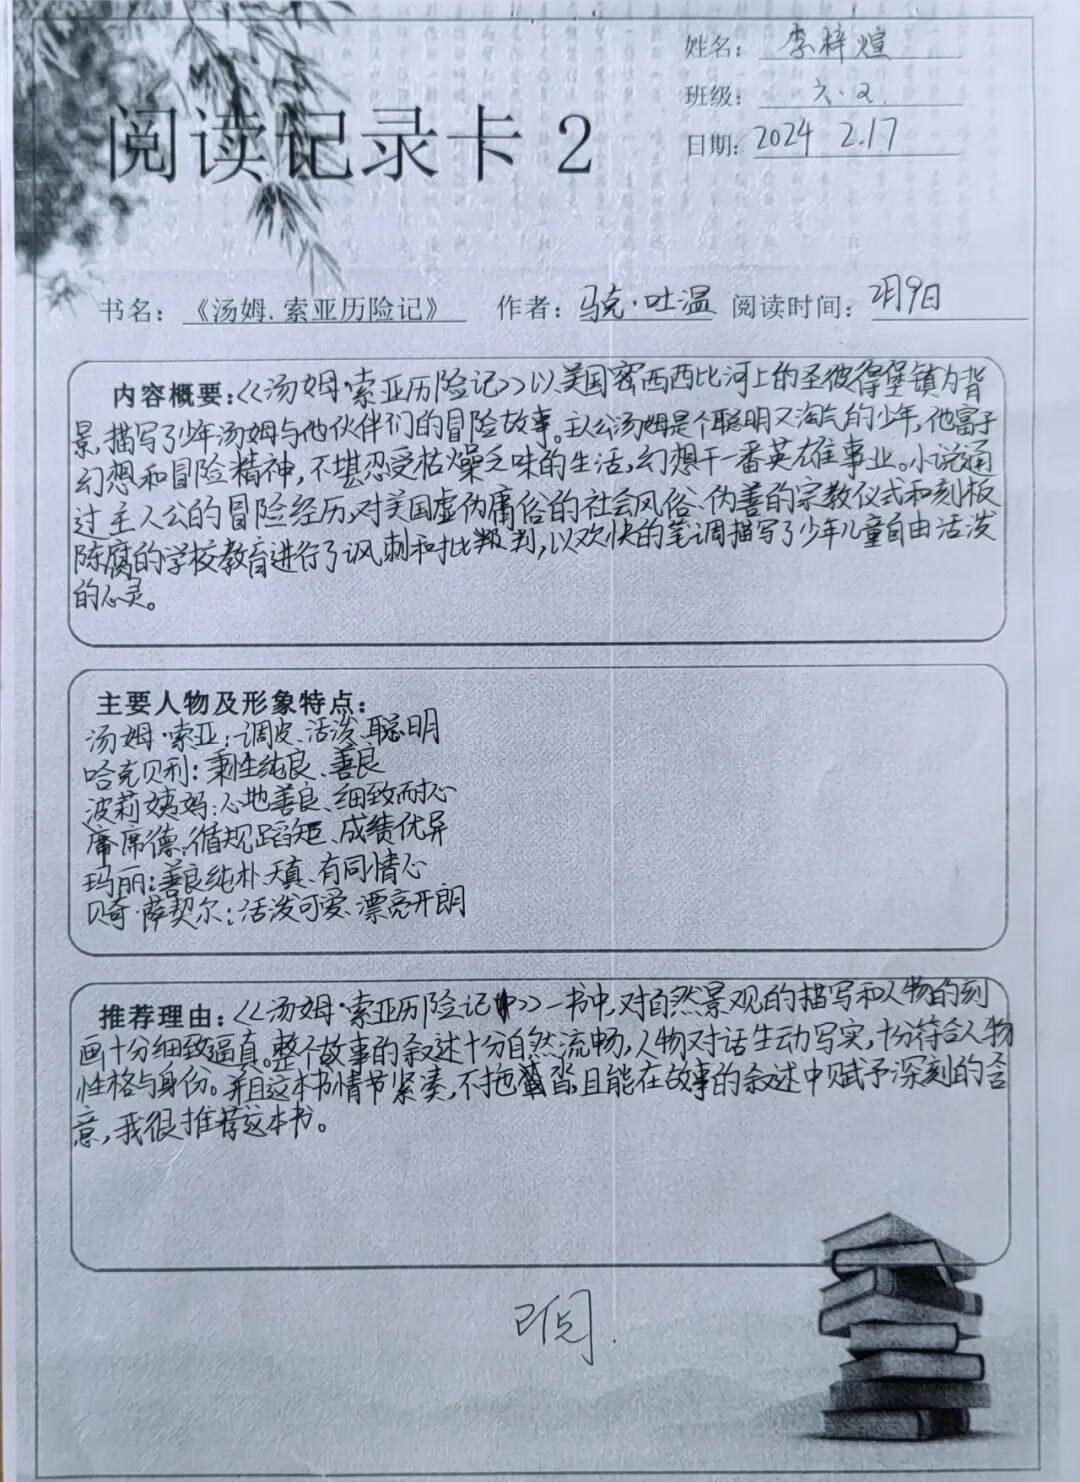 姓名：李梓煊
班级：六.2.
日期：2024 2.17
阅读记录卡 2
书名：《汤姆.索亚历险记》 作者：马克·吐温 阅读时间：2月9日
内容概要：《汤姆·索亚历险记》以美国密西西比河上的圣彼得堡镇为背
景，描写了少年汤姆与他伙伴们的冒险故事。主人公汤姆是个聪明又淘气的少年，他富于
幻想和冒险精神，不堪忍受枯燥乏味的生活，幻想干一番英雄事业。小说通
过主人公的冒险经历，对美国虚伪庸俗的社会风俗、伪善的宗教仪式和刻板
陈腐的学校教育进行了讽刺和批判，以欢快的笔调描写了少年儿童自由活泼
的心灵。
主要人物及形象特点：
汤姆·索亚：调皮、活泼、聪明
哈克贝利：秉性纯良、善良
波莉姨妈：心地善良、细致耐心
席德：循规蹈矩、成绩优异
玛丽：善良纯朴、天真、有同情心
贝奇·萨契尔：活泼可爱、漂亮开朗
推荐理由：《汤姆·索亚历险记》一书中，对自然景观的描写和人物的刻
画十分细致逼真。整个故事的叙述十分自然流畅，人物对话生动写实，十分符合人物
性格与身份。并且这本书情节紧凑，不拖沓，且能在故事的叙述中赋予深刻的含
意，我很推荐这本书。
已阅.